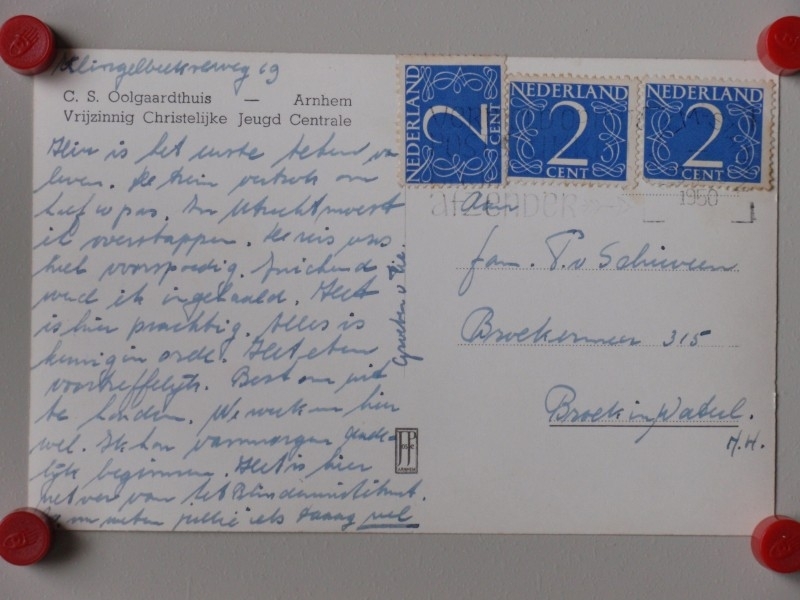 Klingelbeekseweg 69
C. S. Oolgaardthuis — Arnhem
Vrijzinnig Christelijke Jeugd Centrale
Hier is het eerste teken van
leven. De trein vertrok om
half 10 pas. In Utrecht moest
ik overstappen. De reis was
heel voorspoedig. Juichend
werd ik ingehaald. Het
is hier prachtig. Alles is
in orde. Het eten
voortreffelijk. Best om uit
te houden. We werken hier
wel. Ik kon vanmorgen dade-
lijk beginnen. Het is hier
niet ver van het Blindeninstituut.
en weten jullie iets daarag wel
Groeten v
JosPé
ARNHEM
NEDERLAND
2
CENT
NEDERLAND
2
CENT
NEDERLAND
2
CENT
AFZENDER
1950
aan
fam. P. v Schieveen
Broekermeer 315
Broek in Waterl.
N.H.